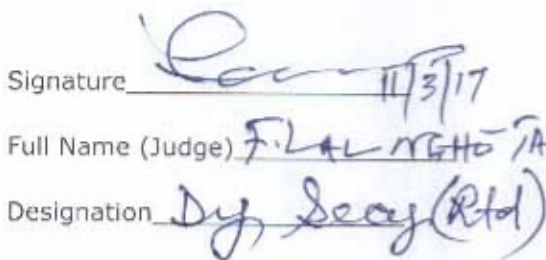 Signature 11/3/17
Full Name (Judge) F. LALNGHÖTA
Designation Dy, Secy (Rtd)